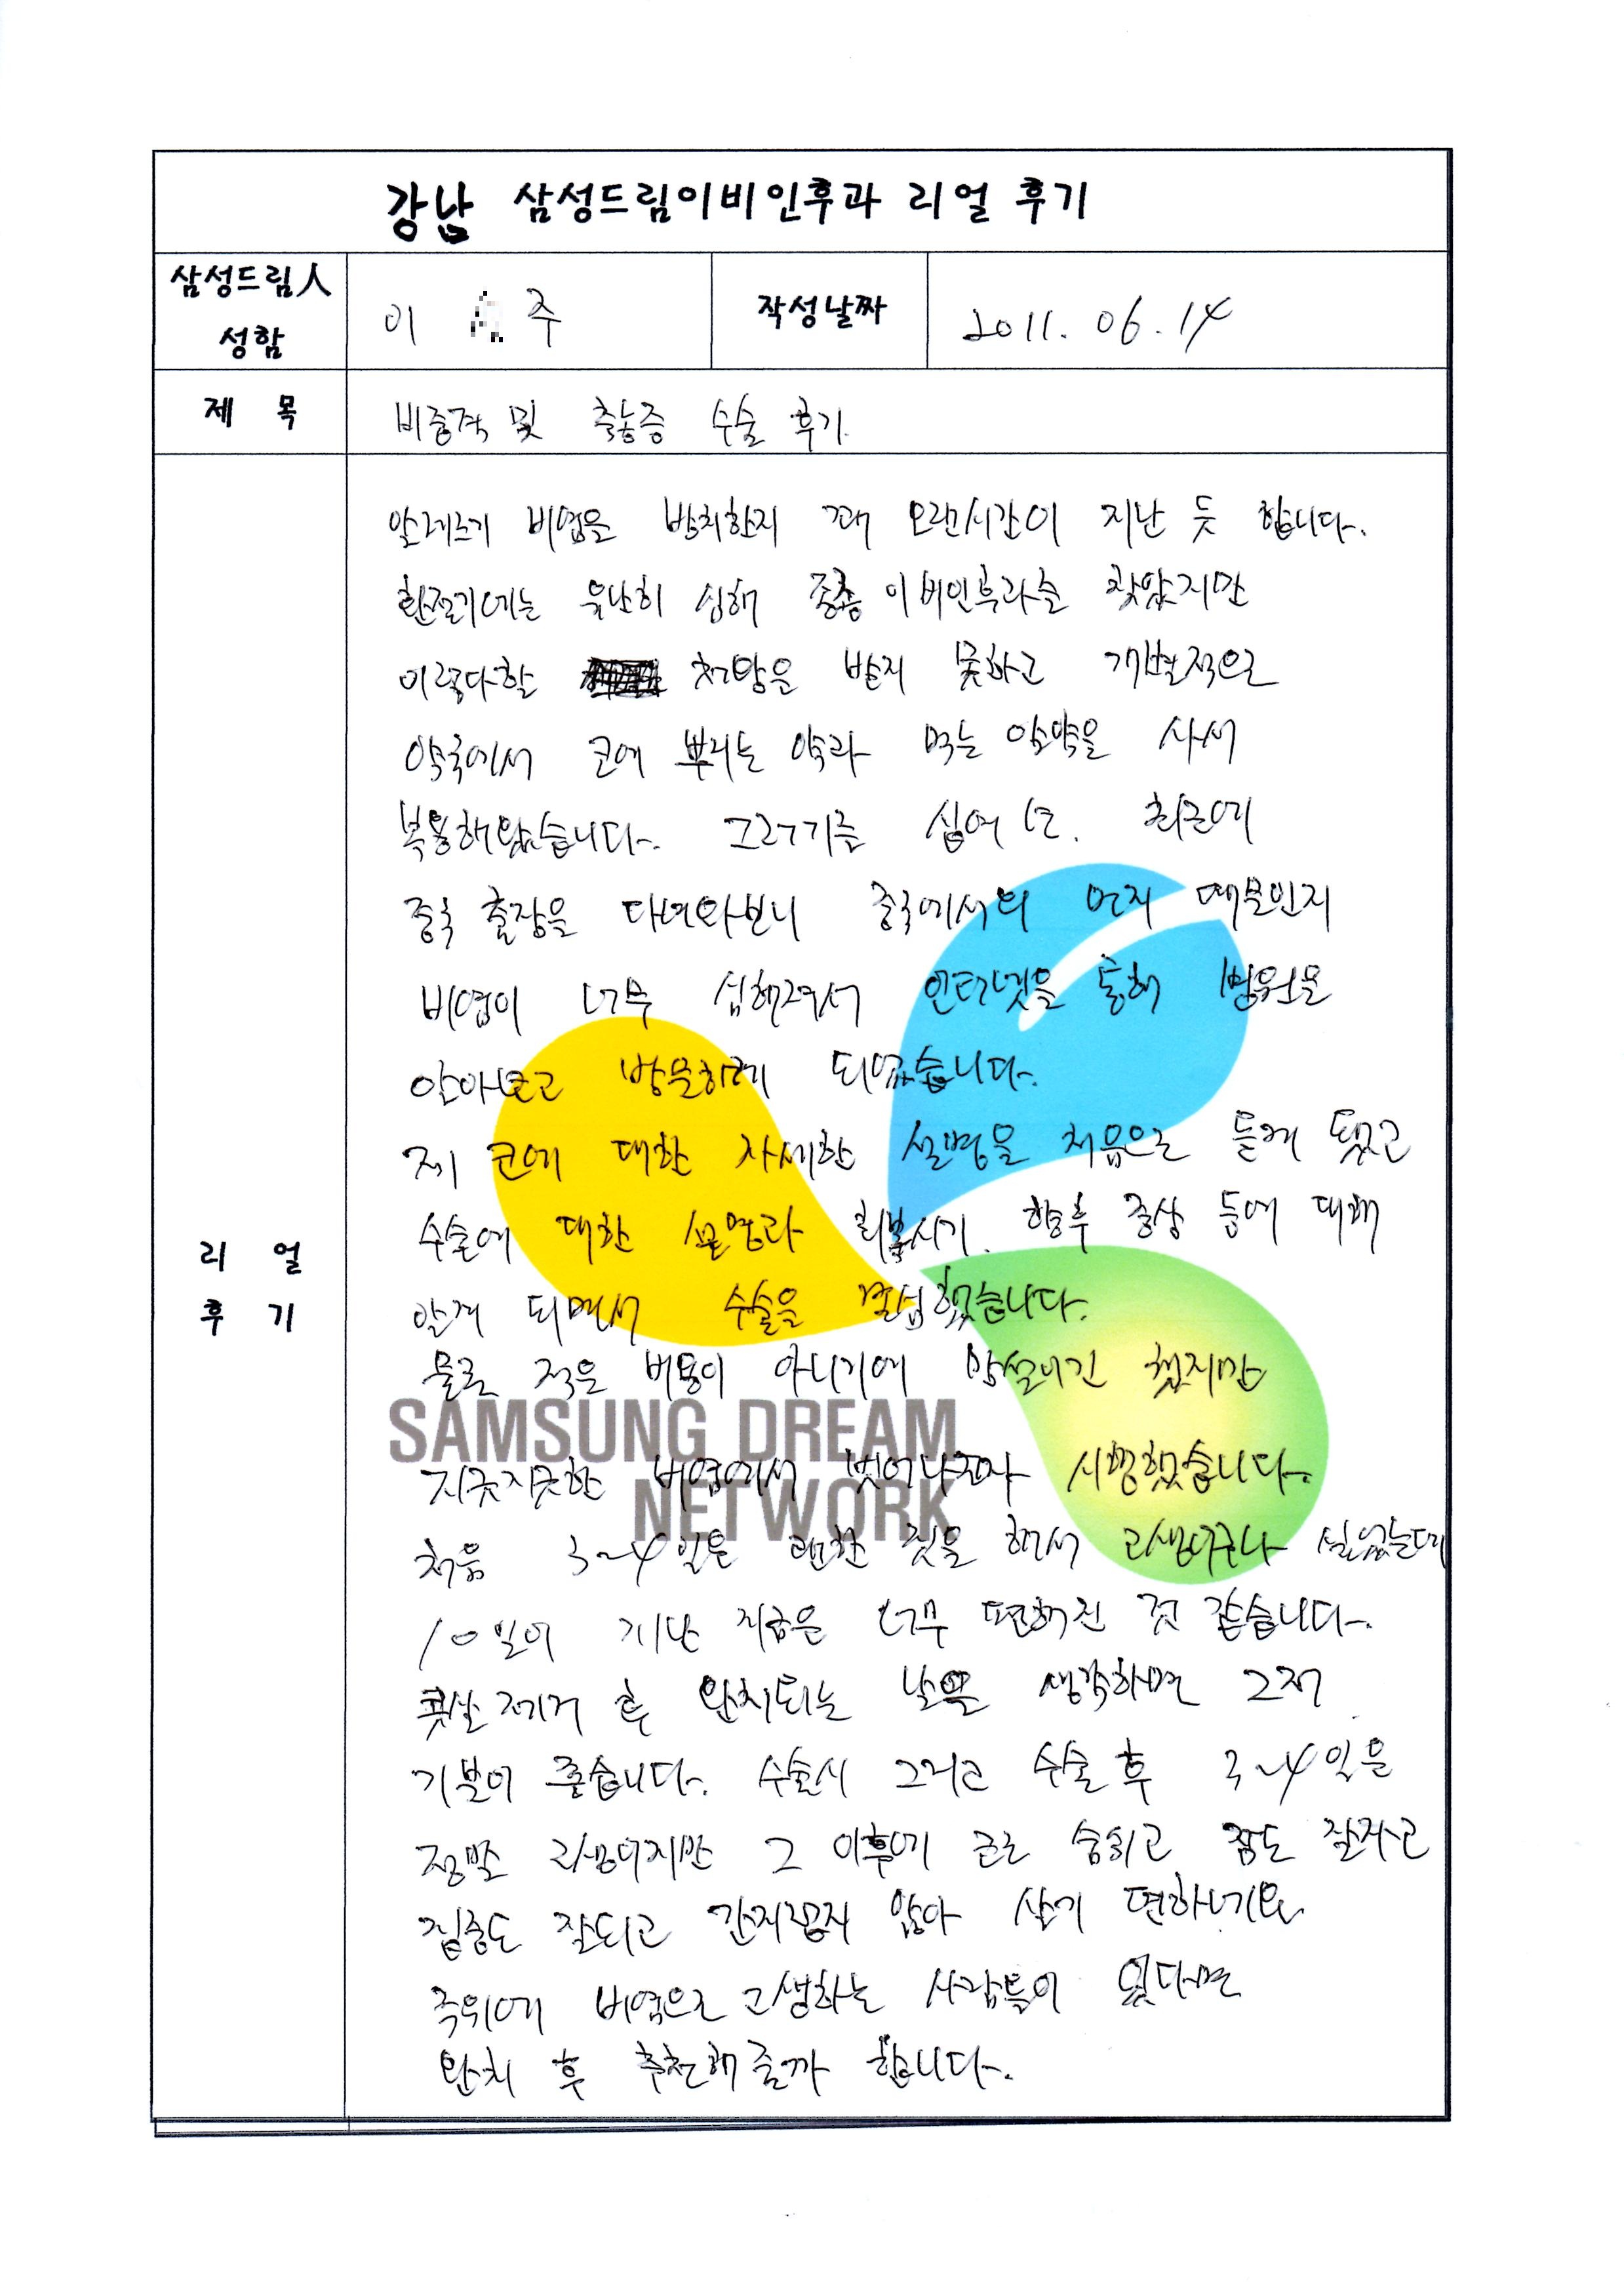 강남 삼성드림이비인후과 리얼 후기
삼성드림人
성함
이 주
작성날짜
2011. 06. 14
제 목
비중격 및 축농증 수술 후기
알레르기 비염을 방치한지 꽤 오랜시간이 지난 듯 합니다.
환절기에는 유난히 심해 종종 이비인후과를 찾았지만
이렇다할 처방을 받지 못하고 개별적으로
약국에서 코에 뿌리는 약과 먹는 알약을 사서
복용해왔습니다. 그러기를 십여 년. 최근에
중국 출장을 다녀와보니 중국에서의 먼지 때문인지
비염이 너무 심해져서 인터넷을 통해 병원을
알아보고 방문하게 되었습니다.
제 코에 대한 자세한 설명을 처음으로 듣게 됐고
수술에 대한 설명과 회복시기, 향후 증상 등에 대해
알게 되면서 수술을 결심했습니다.
물론 적은 비용이 아니기에 망설이긴 했지만
SAMSUNG DREAM
지긋지긋한 비염에서 벗어나고자 시행했습니다.
NETWORK
처음 3~4일은 괜한 짓을 해서 고생이구나 싶었는데
10일이 지난 지금은 너무 편해진 것 같습니다.
콧살 제거 후 완치되는 날을 생각하면 그저
기분이 좋습니다. 수술시 그리고 수술 후 3~4일은
정말 고생이지만 그 이후에 코로 숨쉬고 잠도 잘자고
집중도 잘되고 간지럽지 않아 살기 편하네요.
주위에 비염으로 고생하는 사람들이 있다면
완치 후 추천해 줄까 합니다.
리 얼
후 기